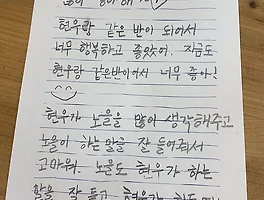 현우랑 같은 반이 되어서
너무 행복하고 좋았어. 지금도
현우랑 같은반이어서 너무 좋아!
현우가 노을을 많이 생각해주고
노을이 하는 말을 잘 들어줘서
고마워. 노을도 현우가 하는
말을 잘 듣고 현우가